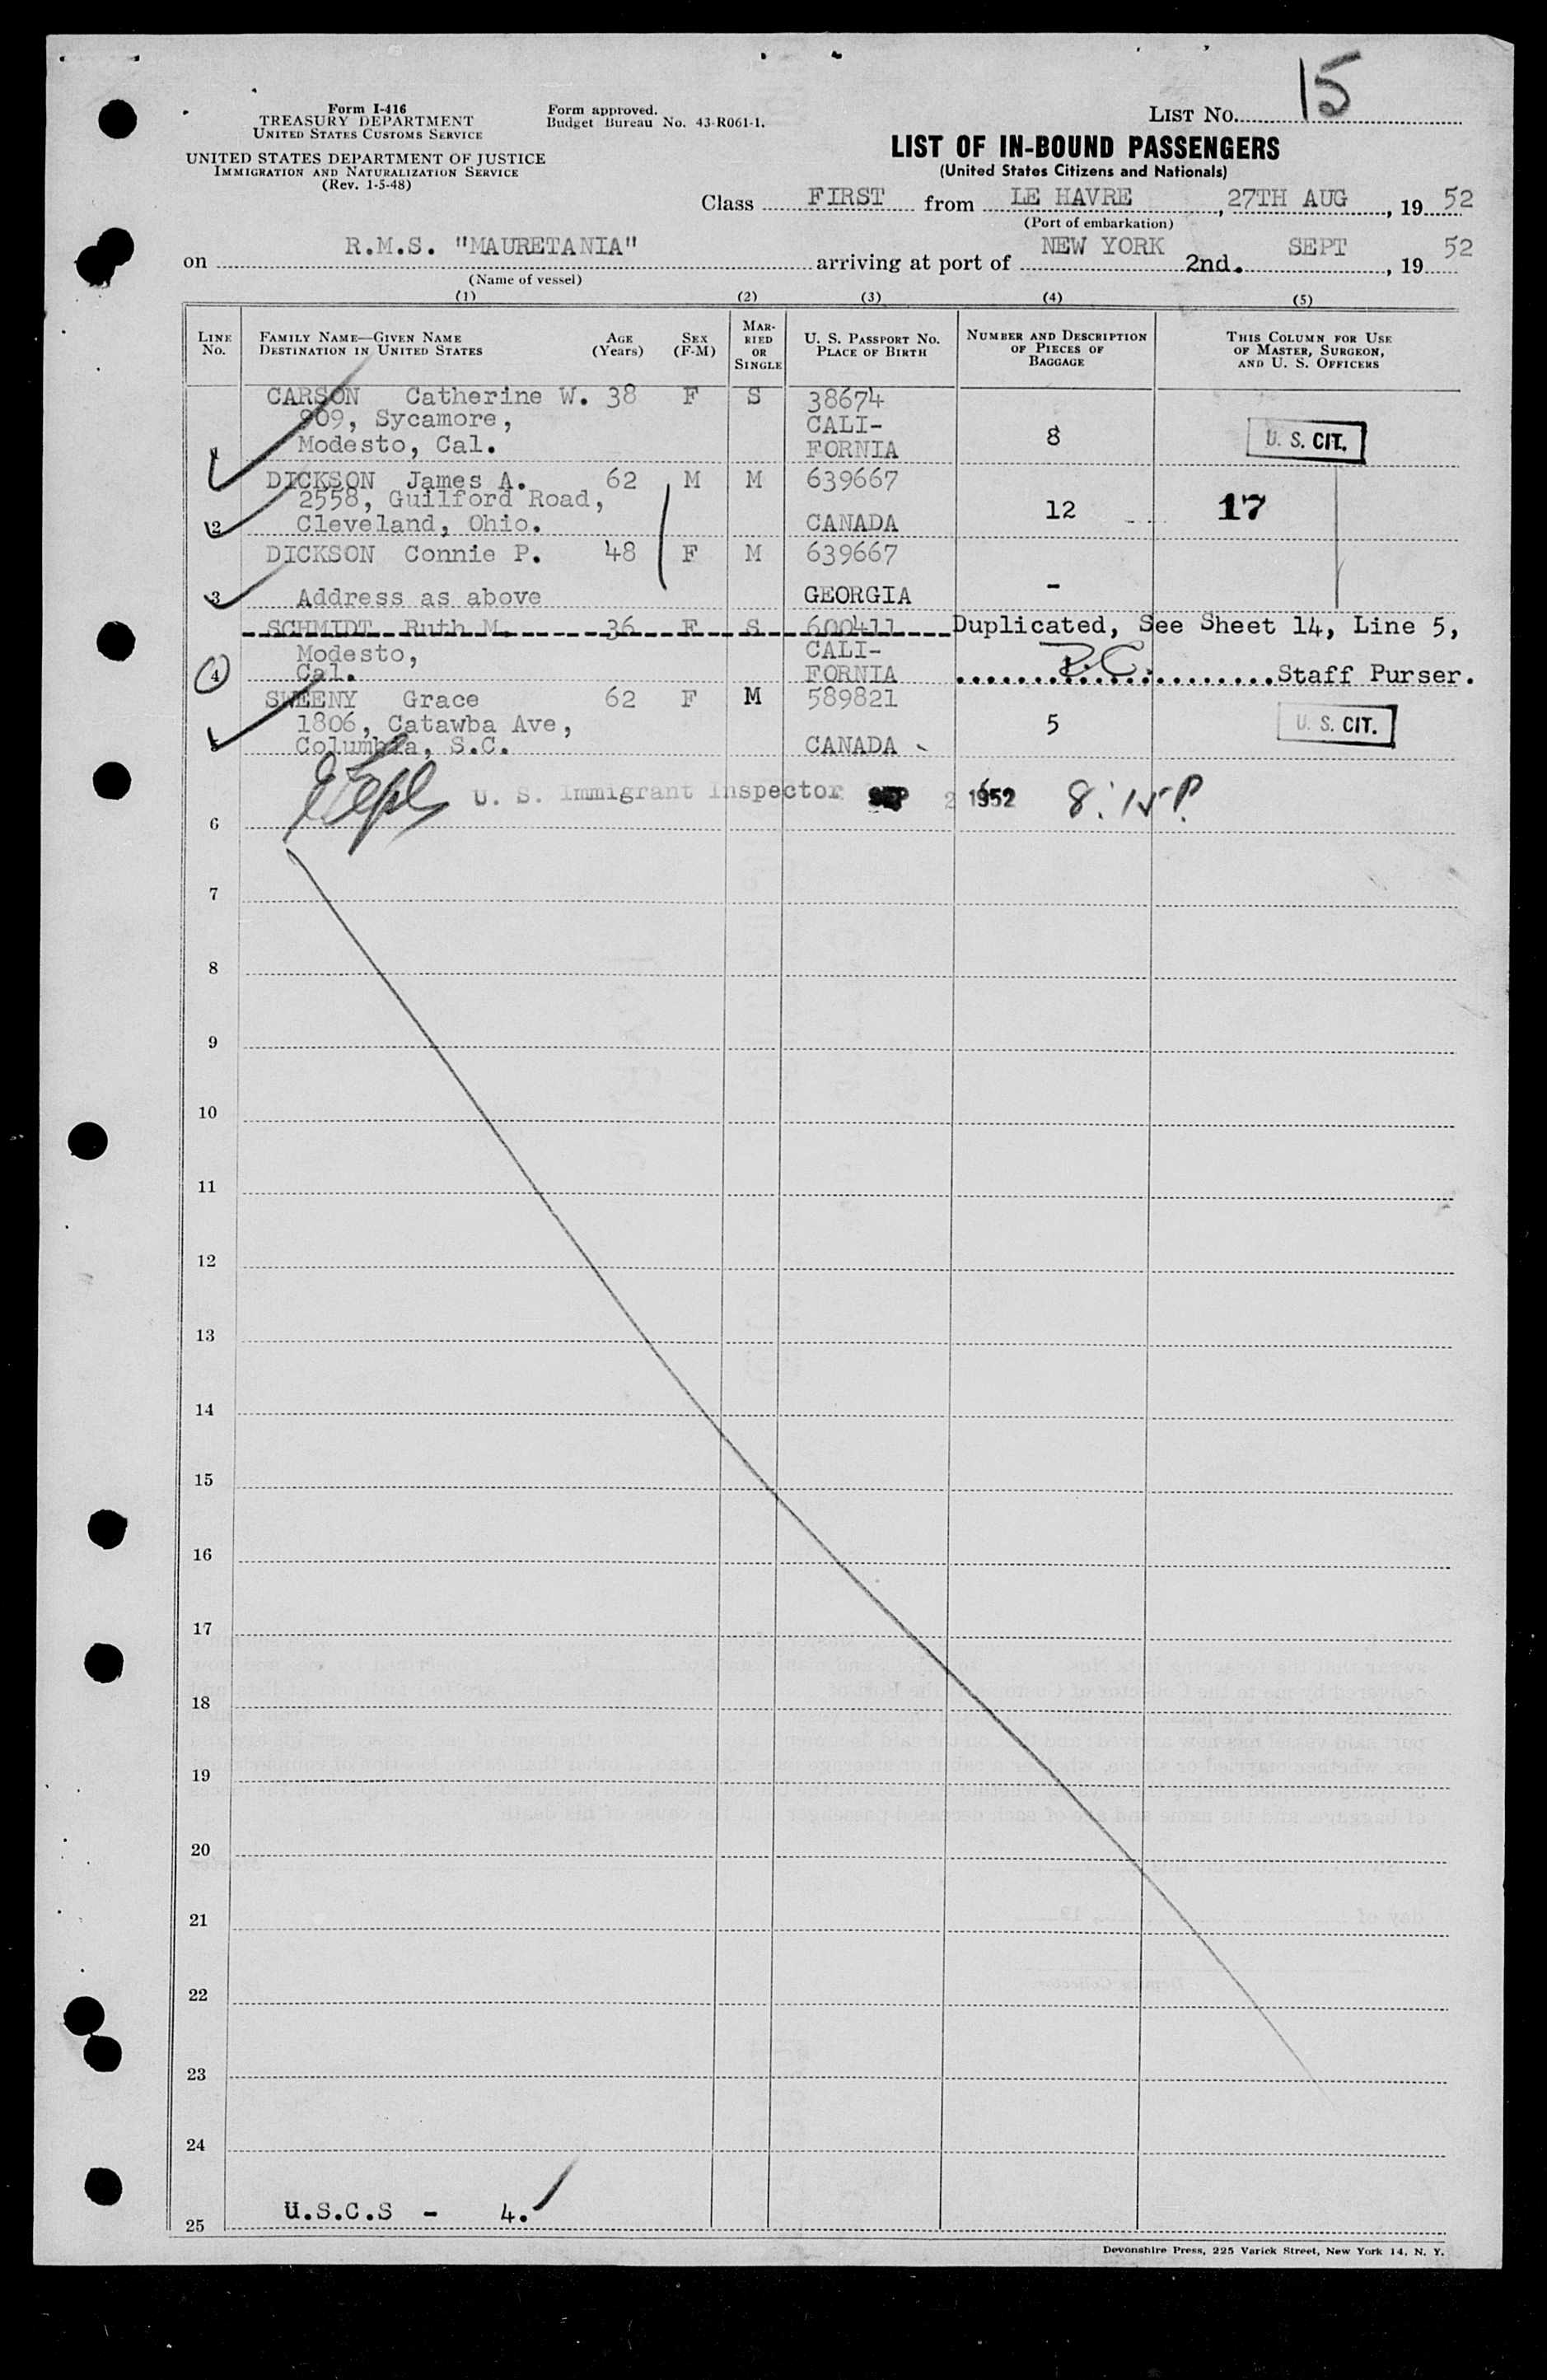 15
Form I-416
TREASURY DEPARTMENT
UNITED STATES CUSTOMS SERVICE
Form approved.
Budget Bureau No. 43-R061-1.
LIST No.
UNITED STATES DEPARTMENT OF JUSTICE
IMMIGRATION AND NATURALIZATION SERVICE
(Rev. 1-5-48)
LIST OF IN-BOUND PASSENGERS
(United States Citizens and Nationals)
Class FIRST from LE HAVRE, 27TH AUG, 19 52
(Port of embarkation)
on R.M.S. "MAURETANIA" arriving at port of NEW YORK 2nd. SEPT, 19 52
(Name of vessel)
(1) (2) (3) (4) (5)
LINE No. FAMILY NAME—GIVEN NAME DESTINATION IN UNITED STATES AGE (Years) SEX (F-M) MARRIED OR SINGLE U. S. PASSPORT No. PLACE OF BIRTH NUMBER AND DESCRIPTION OF PIECES OF BAGGAGE THIS COLUMN FOR USE OF MASTER, SURGEON, AND U. S. OFFICERS
CARSON Catherine W. 38 F S 38674
909, Sycamore, CALI-
1 Modesto, Cal. FORNIA 8 U. S. CIT.
DICKSON James A. 62 M M 639667
2558, Guilford Road, 12 17
2 Cleveland, Ohio. CANADA
DICKSON Connie P. 48 F M 639667
3 Address as above GEORGIA -
SCHMIDT Ruth M. 36 F S 600411 Duplicated, See Sheet 14, Line 5,
Modesto, CALI-
4 Cal. FORNIA Staff Purser.
SWEENY Grace 62 F M 589821
1806, Catawba Ave, 5 U. S. CIT.
5 Columbia, S.C. CANADA
U. S. Immigrant Inspector SEP 2 1952 8:15 P.
6
7
8
9
10
11
12
13
14
15
16
17
18
19
20
21
22
23
24
25 U.S.C.S - 4.
Devonshire Press, 225 Varick Street, New York 14, N. Y.